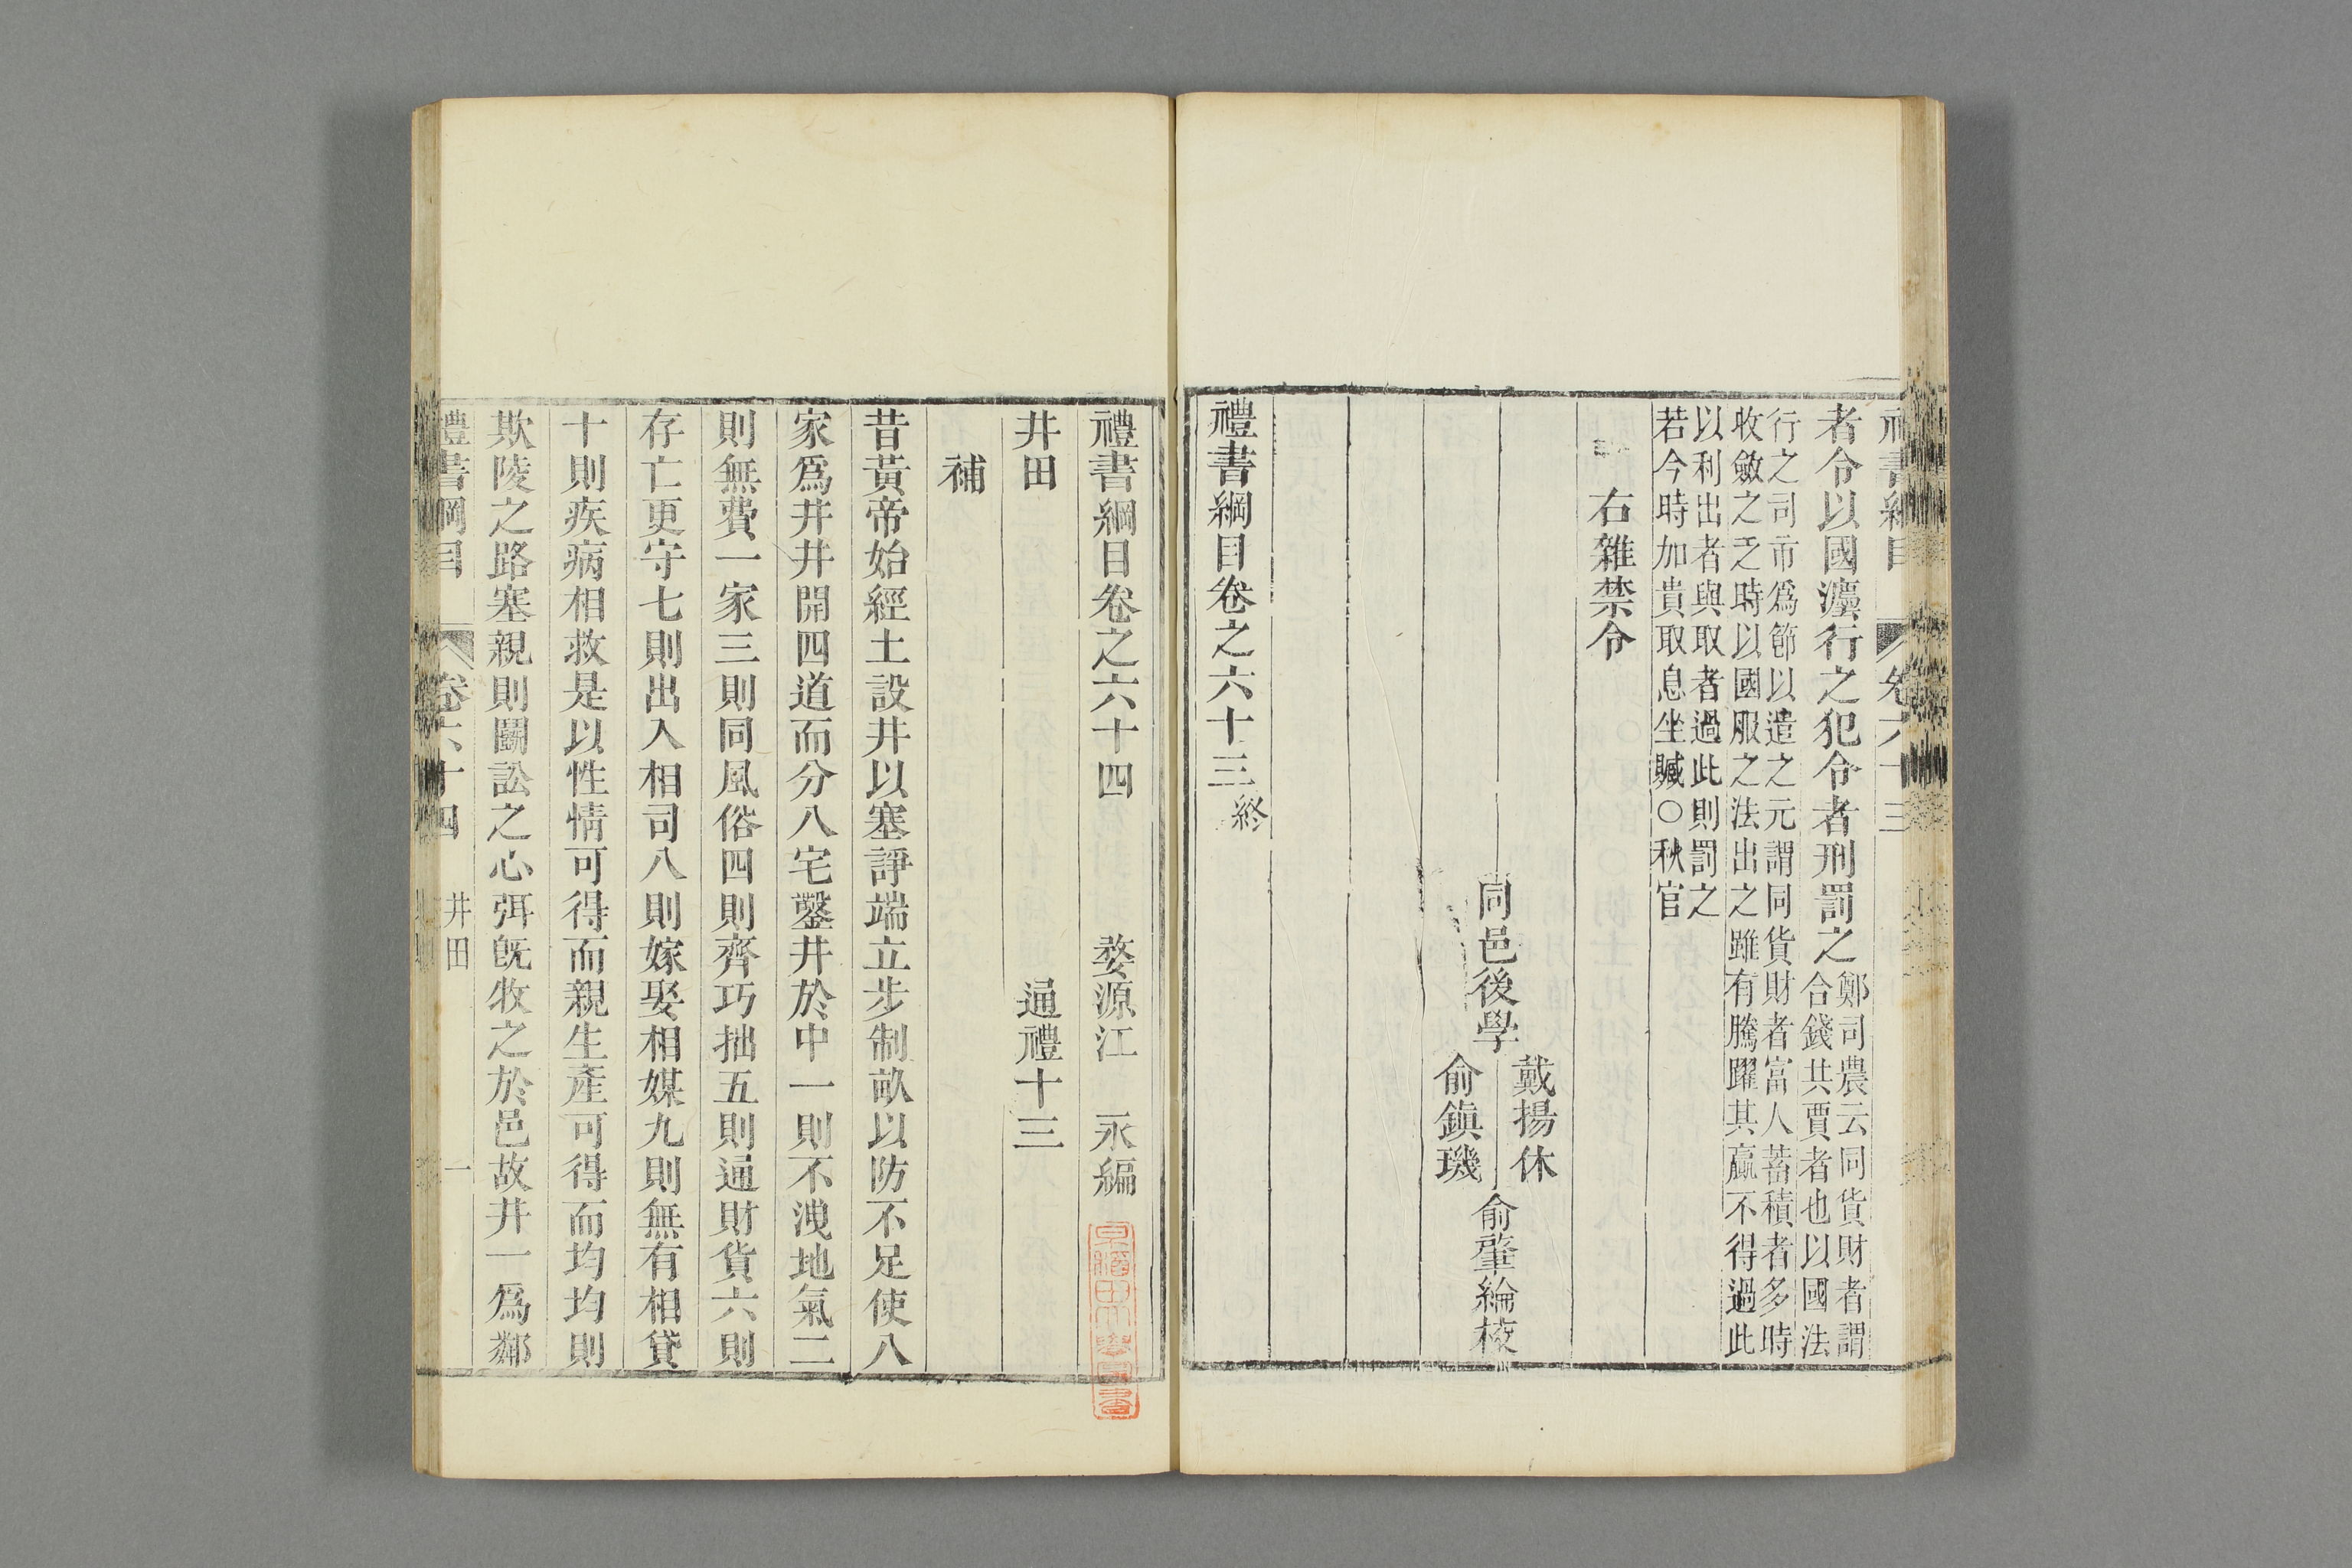 者令以國灋行之犯令者刑罰之
鄭司農云同貨財者謂
合錢共賈者也以國法
行之司市爲節以遣之元謂同貨財者富人蓄積者多時
收斂之乏時以國服之法出之雖有騰躍其贏不得過此
以利出者與取者過此則罰之
若今時加貴取息坐贓○秋官
右雜禁令
同邑後學
戴揚休
俞鎭璣
俞肇綸校
禮書綱目卷之六十三終
禮書綱目卷之六十四 婺源江 永編
井田 通禮十三
補
昔黃帝始經土設井以塞諍端立步制畝以防不足使八
家爲井井開四道而分八宅鑿井於中一則不洩地氣二
則無費一家三則同風俗四則齊巧拙五則通財貨六則
存亡更守七則出入相司八則嫁娶相媒九則無有相貸
十則疾病相救是以性情可得而親生產可得而均均則
欺陵之路塞親則鬭訟之心弭旣牧之於邑故井一爲鄰
禮書綱目 卷六十四 井田 一
早稲田大學圖書